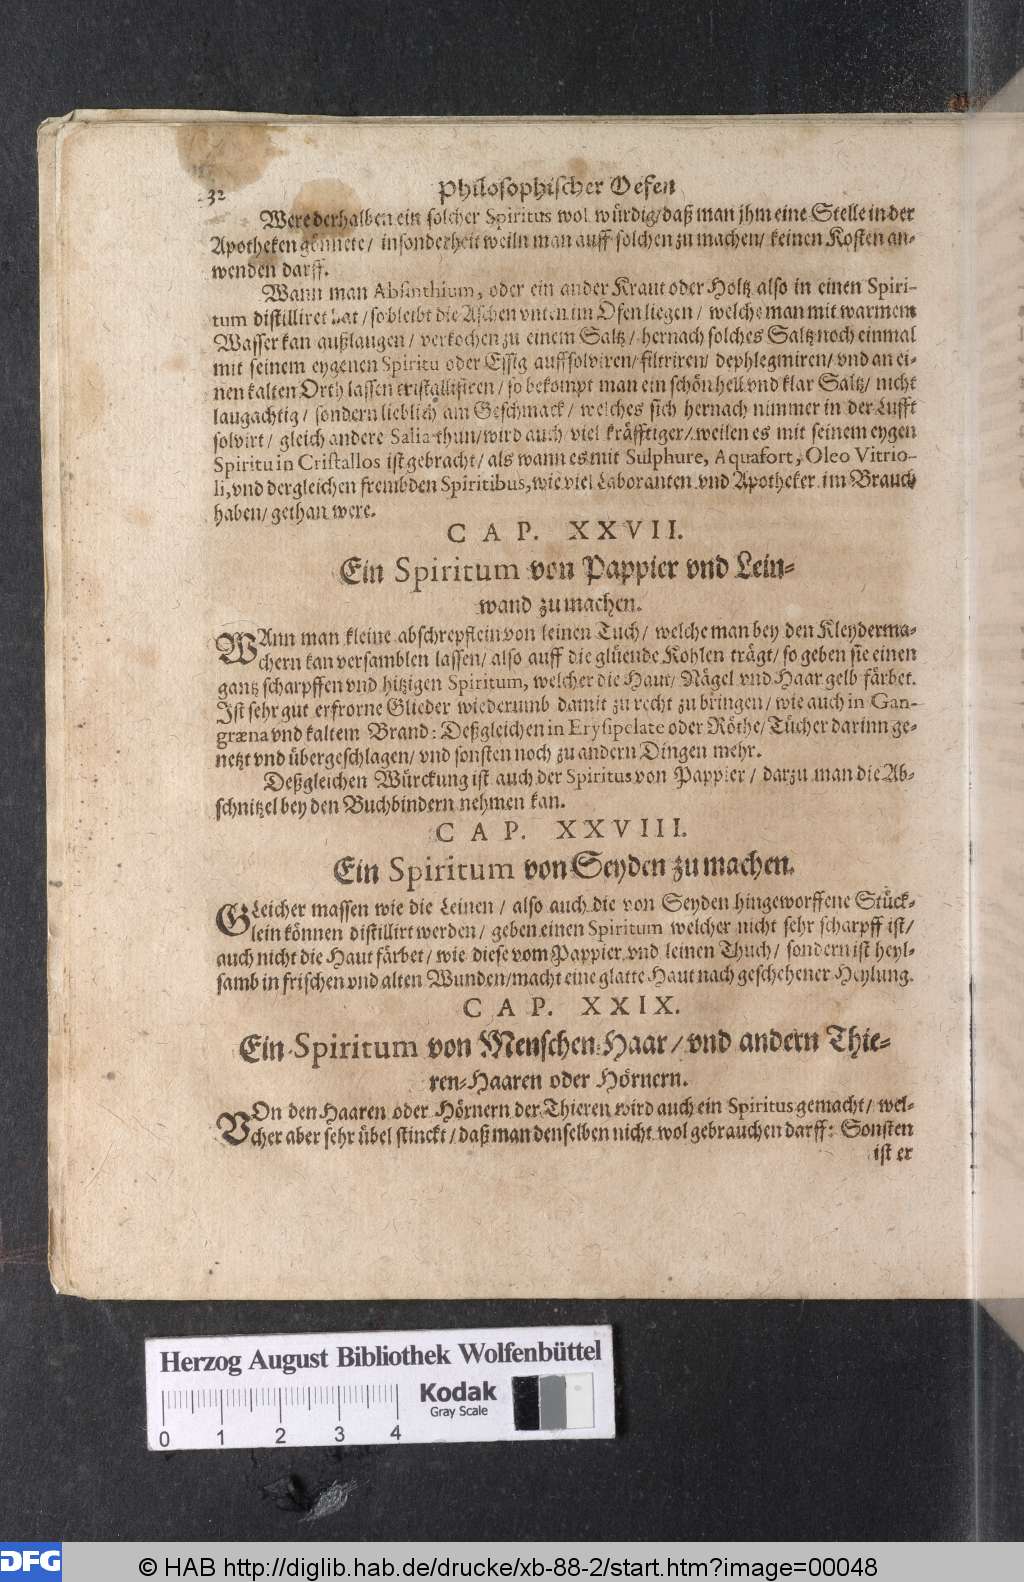 32
Philosophischer Oefen
Were derhalben ein solcher Spiritus wol würdig/ daß man jhm eine Stelle in der
Apotheken gönnete/ insonderheit weiln man auff solchen zu machen/ keinen Kosten an-
wenden darff.
Wann man Absinthium, oder ein ander Kraut oder Holtz also in einen Spiri-
tum distilliret hat/ so bleibt die Aschen vnten im Ofen liegen/ welche man mit warmem
Wasser kan außlaugen/ verkochen zu einem Saltz/ hernach solches Saltz noch einmal
mit seinem eygenen Spiritu oder Essig auffsolviren/ filtriren/ dephlegmiren/ vnd an ei-
nen kalten Orth lassen cristallisiren/ so bekompt man ein schön hell vnd klar Saltz/ nicht
laugachtig/ sondern lieblich am Geschmack/ welches sich hernach nimmer in der Lufft
solvirt/ gleich andere Salia thun/ wird auch viel kräfftiger/ weilen es mit seinem eygen
Spiritu in Cristallos ist gebracht/ als wann es mit Sulphure, Aquafort, Oleo Vitrio-
li, vnd dergleichen frembden Spiritibus, wie viel Laboranten vnd Apotheker im Brauch
haben/ gethan were.
CAP. XXVII.
Ein Spiritum von Pappier vnd Lein-
wand zu machen.
WAnn man kleine abschrepflein von leinen Tuch/ welche man bey den Kleyderma-
chern kan versamblen lassen/ also auff die glüende Kohlen trägt/ so geben sie einen
gantz scharpffen vnd hitzigen Spiritum, welcher die Haut/ Nägel vnd Haar gelb färbet.
Ist sehr gut erfrorne Glieder wiederumb damit zu recht zu bringen/ wie auch in Gan-
græna vnd kaltem Brand: Deßgleichen in Erysipelate oder Röthe/ Tücher darinn ge-
netzt vnd übergeschlagen/ vnd sonsten noch zu andern Dingen mehr.
Deßgleichen Würckung ist auch der Spiritus von Pappier/ darzu man die Ab-
schnitzel bey den Buchbindern nehmen kan.
CAP. XXVIII.
Ein Spiritum von Seyden zu machen.
GLeicher massen wie die Leinen/ also auch die von Seyden hingeworffene Stück-
lein können distillirt werden/ geben einen Spiritum welcher nicht sehr scharpff ist/
auch nicht die Haut färbet/ wie diese vom Pappier vnd leinen Thuch/ sondern ist heyl-
samb in frischen vnd alten Wunden/ macht eine glatte Haut nach geschehener Heylung.
CAP. XXIX.
Ein Spiritum von Menschen-Haar/ vnd andern Thie-
ren-Haaren oder Hörnern.
VOn den Haaren oder Hörnern der Thieren wird auch ein Spiritus gemacht/ wel-
cher aber sehr übel stinckt/ daß man denselben nicht wol gebrauchen darff: Sonsten
ist er
Herzog August Bibliothek Wolfenbüttel
Kodak
Gray Scale
0 1 2 3 4
DFG
© HAB http://diglib.hab.de/drucke/xb-88-2/start.htm?image=00048